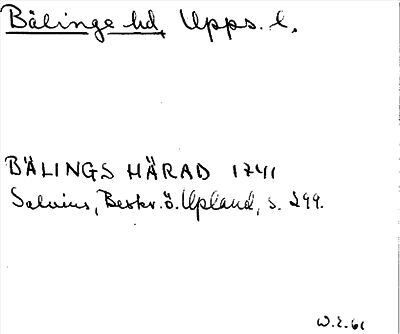 Bälinge hd, Upps. l.
BÄLINGS HÄRAD 1741
Salvius, Beskr. ö. Upland, s. 299.
W.E. 61